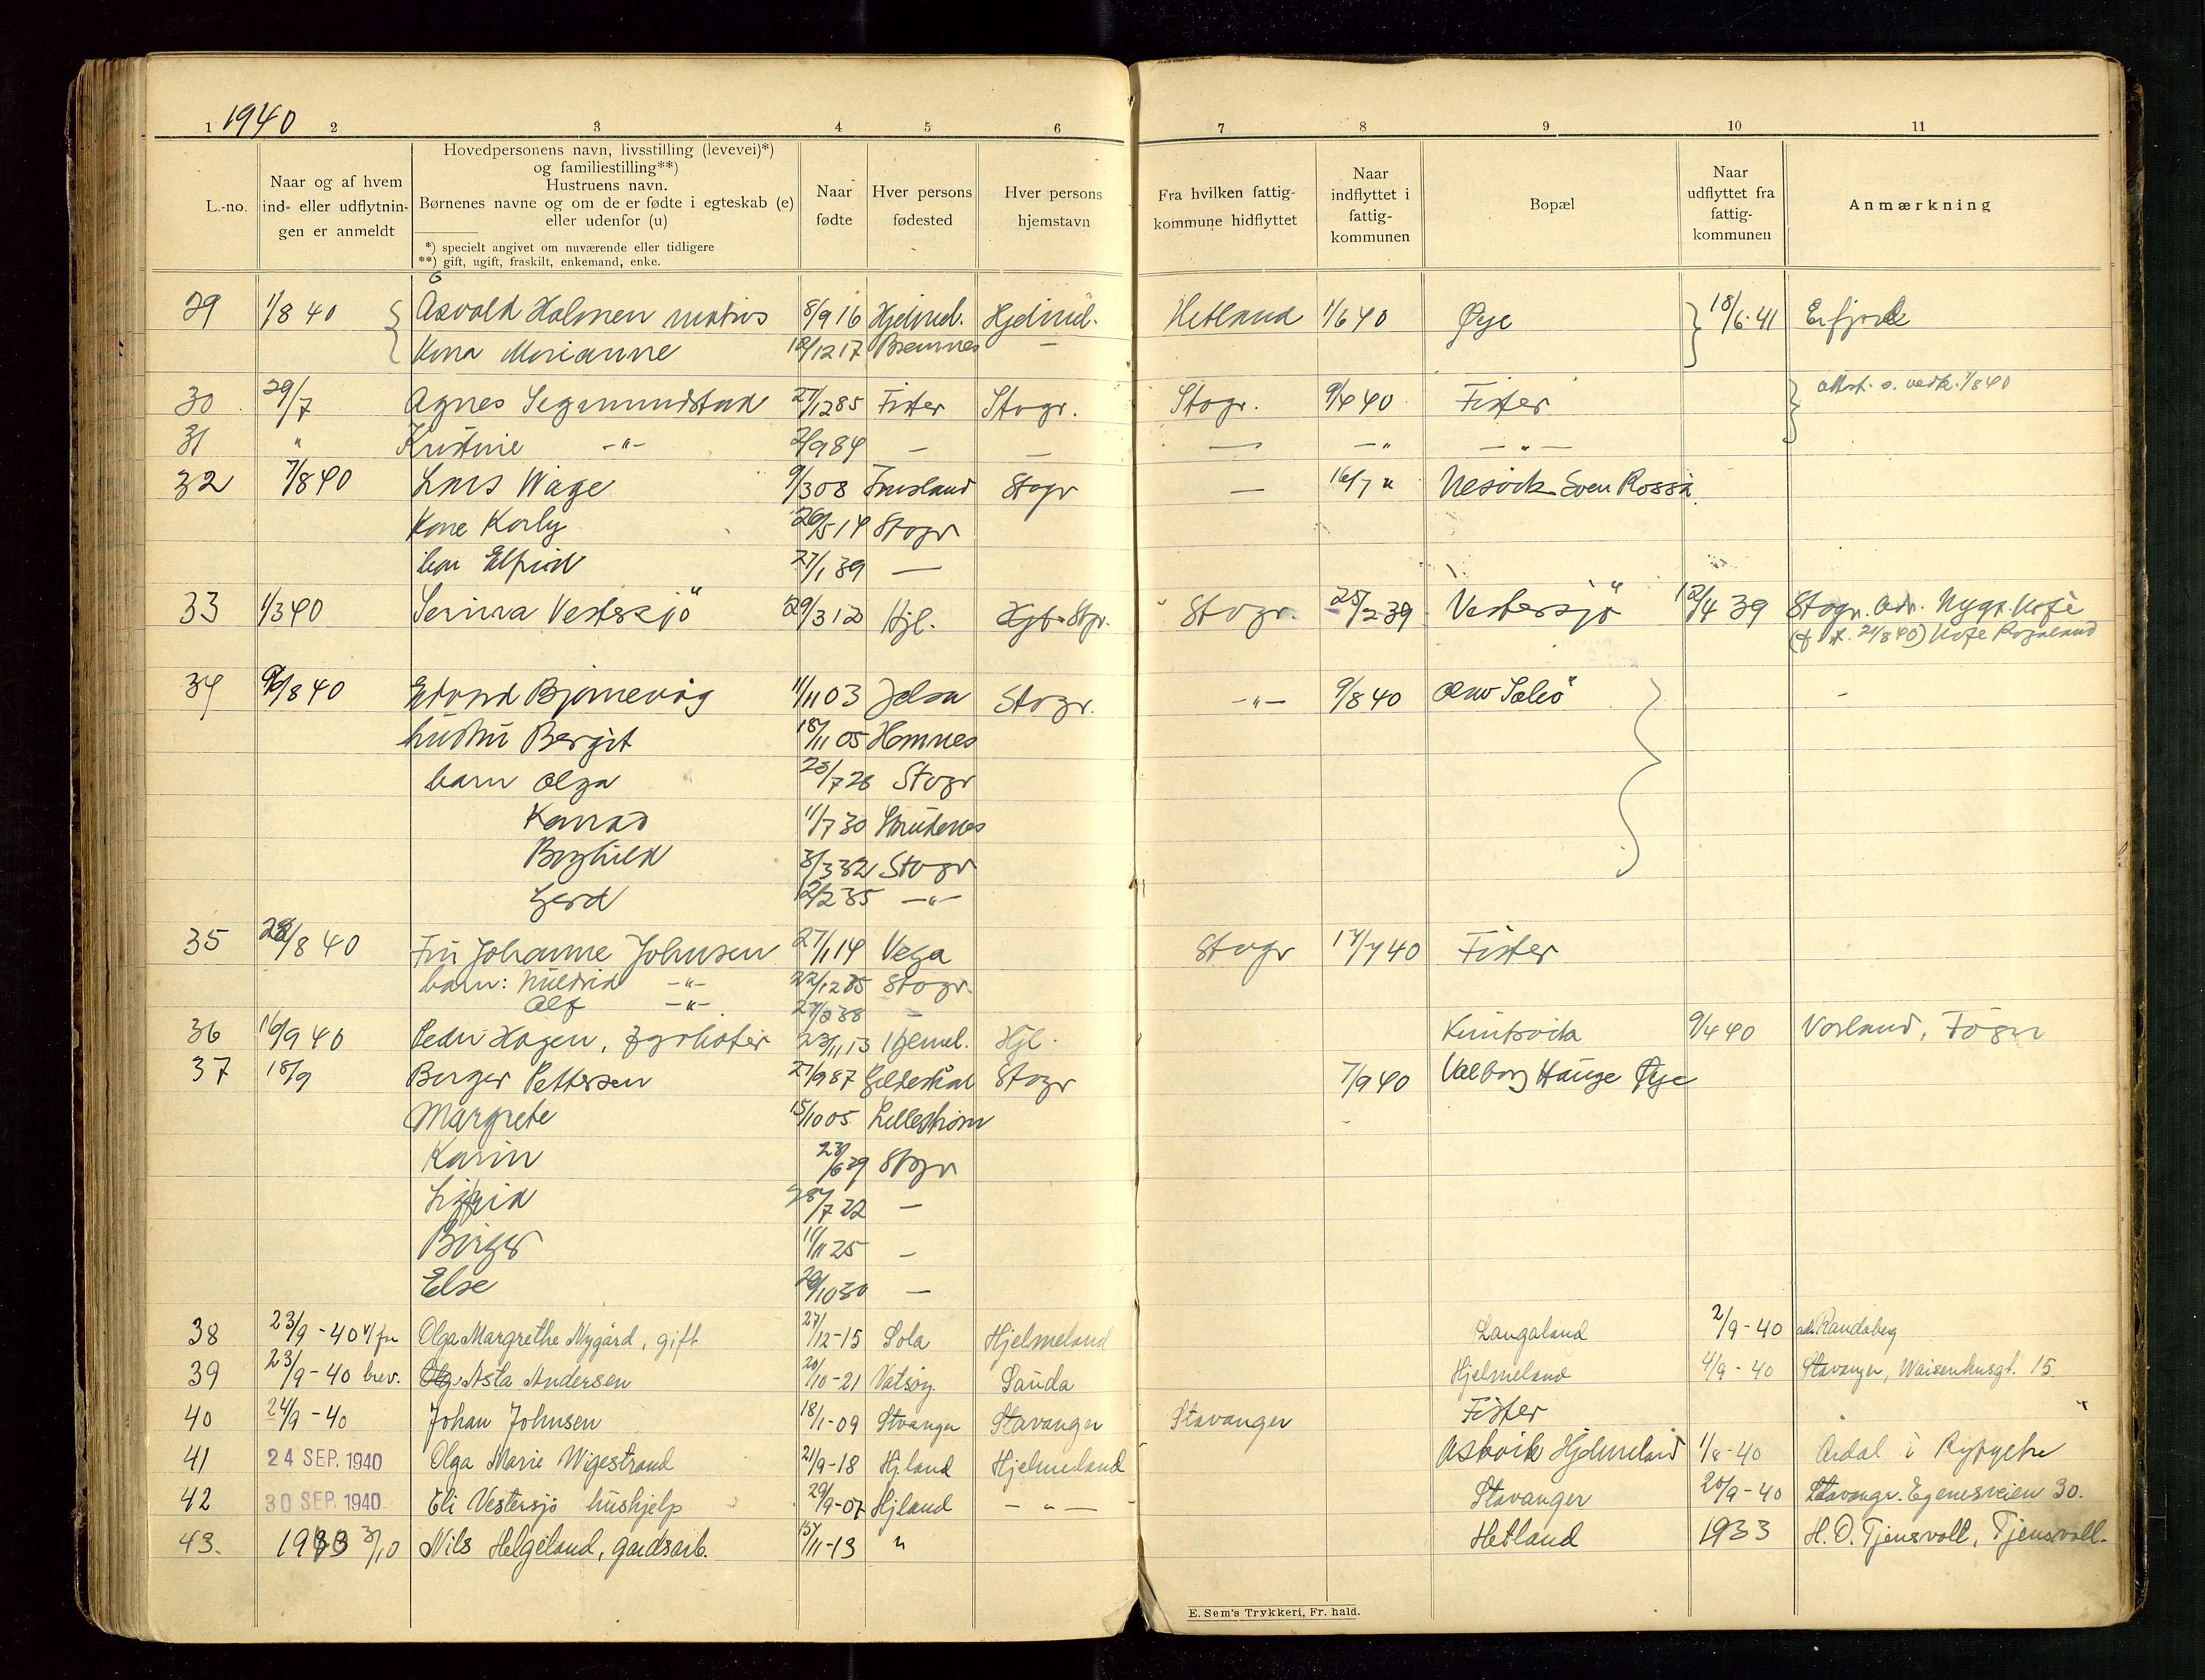 1940
1 2 3 4 5 6 7 8 9 10 11
L.-no.
Naar og af hvem
ind- eller udflytnin-
gen er anmeldt
Hovedpersonens navn, livsstilling (levevei)*)
og familiestilling**)
Hustruens navn.
Børnenes navne og om de er fødte i egteskab (e)
eller udenfor (u)
*) specielt angivet om nuværende eller tidligere
**) gift, ugift, fraskilt, enkemand, enke.
Naar
fødte
Hver persons
fødested
Hver persons
hjemstavn
Fra hvilken fattig-
kommune hidflyttet
Naar
indflyttet i
fattig-
kommunen
Bopæl
Naar
udflyttet fra
fattig-
kommunen
Anmærkning
29 1/8 40 Asvald Halmen 8/9 16 Hjelmel. Hjelmel. Hetland 1/6 40 Øye 18/6-41 Erfjord
Kona Marianne 12/12 17 Bremnes —
30 29/7 Agnes Segamundstad 27/12 85 Fister Stvgr. Stvgr. 9/4 40 Fister
31 " Kristine -"- 2/9 84 — — — —" —"—
32 7/8 40 Lars Wåge 9/3 08 Stvgr — 16/7 " Nesvik Sven Rosså
Kone Karly 26/5 14 Stvgr
barn Elfrid 27/1 39 —
33 1/3 40 Serina Vestersjö 29/3 12 Hjl. Stvgr. Stvgr. 25/2 39 Vestersjö 12/4 39 Stvgr. adr. Nygt. Kafe
Kafe Rogaland
34 9/8 40 Edvard Bjørnevåg 11/11 03 Jelsa Stvgr. -"- 9/8 40
hustru Bergit 18/11 05 Hemnes
barn Olga 25/7 26 Stvgr
Konrad 11/7 30 Skudenes
Borghild 3/3 32 Stvgr
Gerd 12/2 35 —"—
35 28/8 40 Fru Johanne Johnsen 27/1 14 Vega Stvgr 17/7 40 Fister
barn: Mildrid -"- 22/12 35 Stvgr.
Alf -"- 38 —
36 16/9 40 Peder Hagen, 23/11 13 Hjemel. Hjl. Knutsvik 9/4 40
37 18/9 Berger Pettersen 27/9 87 Gildeskål Stvgr 7/9 40 Valborg Hauge Øye
Margrete 15/10 05 Lillestrøm
Karin Stvgr
28/7 22 —
Birger 11/11 25 —
Else 29/10 30 —
38 23/9-40 Olga Margrethe Nygård, gift 27/12-15 Sola Hjelmeland Langaland 2/9-40 adr. Randaberg
39 23/9-40 brev. Asta Andersen 20/10-21 Sauda Hjelmeland 4/9-40 Stavanger, Waisenhusgt. 15.
40 24/9-40 Johan Johnsen 18/1-09 Stvanger Stavanger Stavanger Fister "
41 24 SEP. 1940 Olga Marie Wigestrand 21/9-18 Hjland Hjelmeland Askvik Hjelmeland 1/8-40 Årdal i Ryfylke
42 30 SEP. 1940 Eli Vestersjø hushjelp 29/9-07 Hjland —"— Stavanger 20/9-40 Stavangr. Egenesveien 30.
43. 3/10 Nils Helgeland, gardsarb. 15/11-13 " Hetland 1933 H. O. Tjensvoll, Tjensvoll.
E. Sem's Trykkeri, Fr. hald.